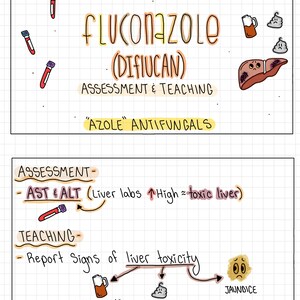 fluconazole
(DIFLUCAN)
ASSESSMENT & TEACHING
"AZOLE" ANTIFUNGALS
ASSESSMENT-
- AST & ALT (Liver labs ↑High = toxic liver)
TEACHING-
- Report Signs of liver toxicity
JAUNDICE